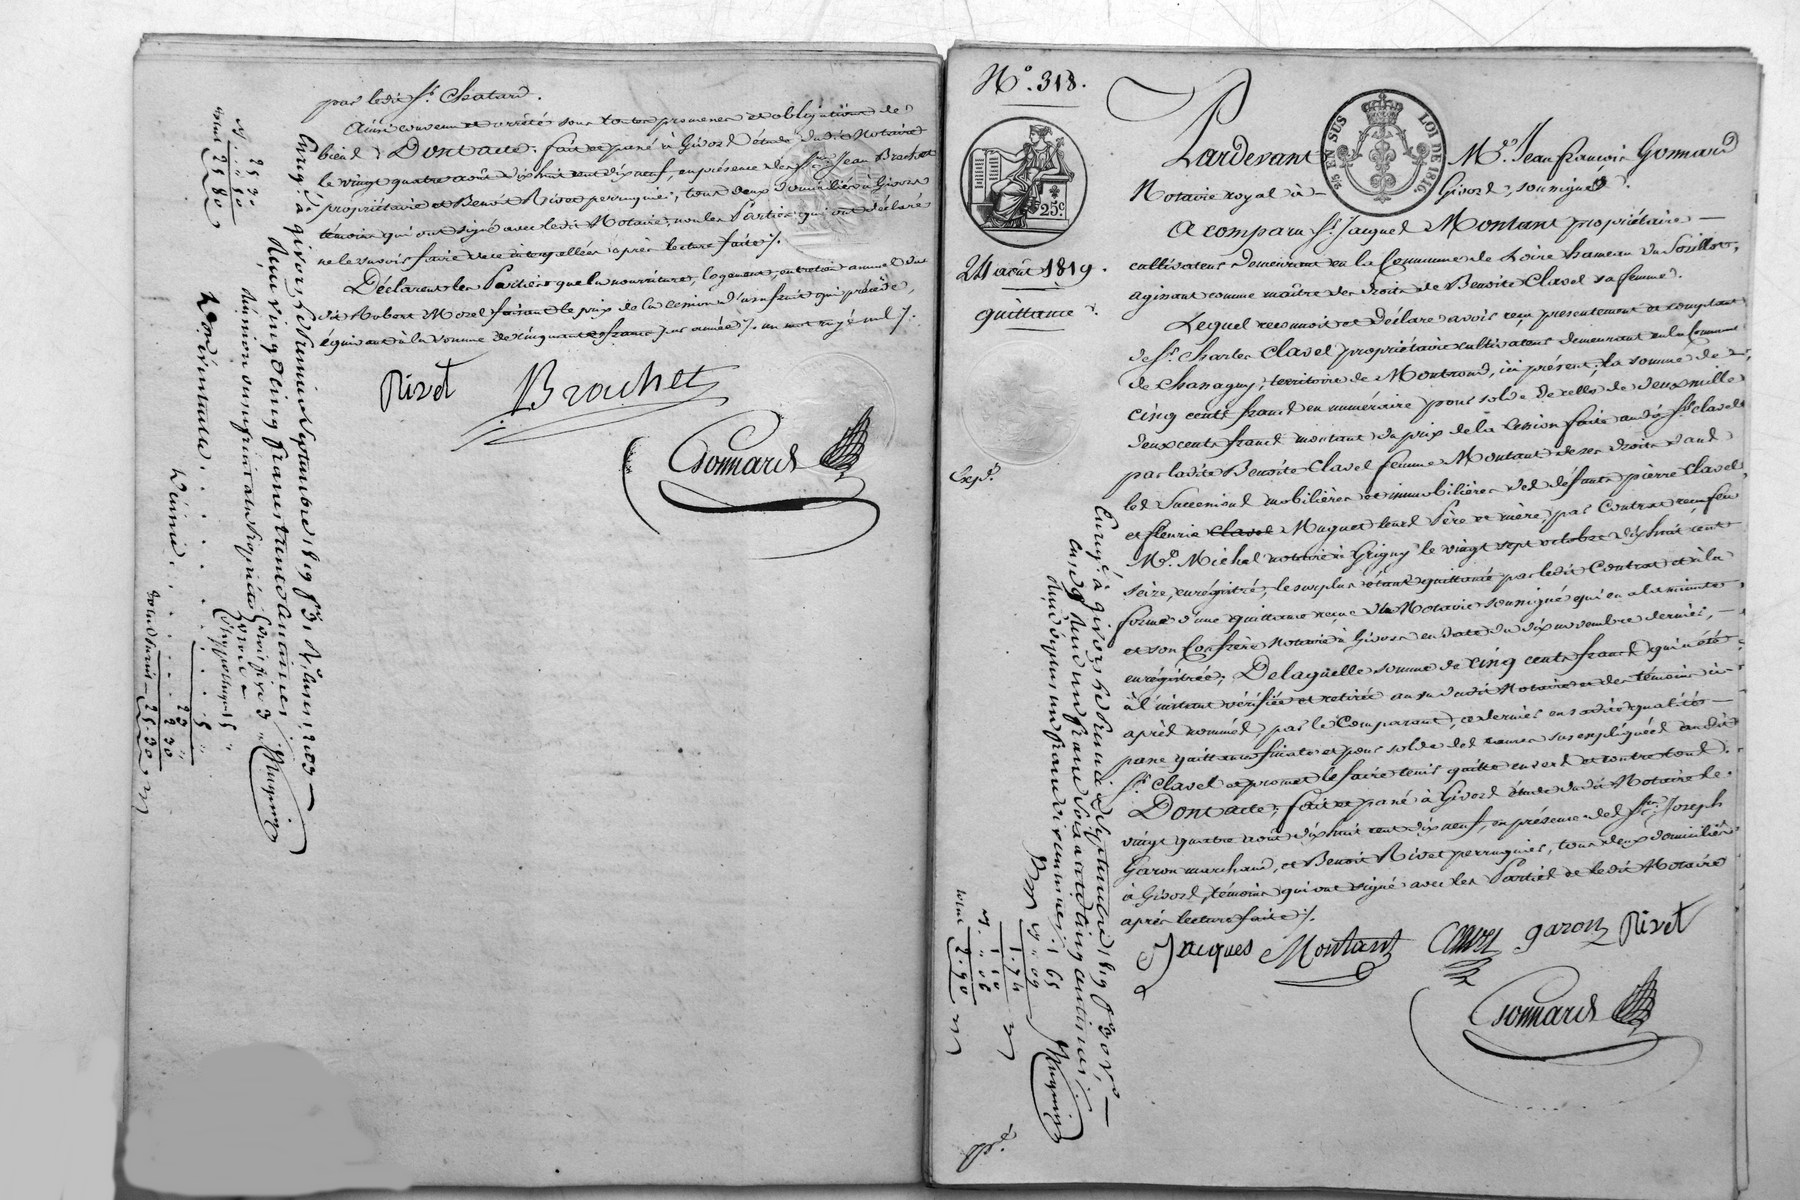 par ledit Sr. Chatard.
Ainsi convenu et arrêté sous toutes promesses et obligations de
biens; Dont acte; fait et passé à Givors étude dudit Notaire
le vingt quatre août dix huit cent dix neuf, en présence des Srs. Jean Brochet
propriétaire et Benoit Rivet perruquier, tous deux domiciliés à Givors
témoins qui ont signé avec ledit Notaire, non les Parties qui ont déclaré
ne le savoir faire de ce interpellées après lecture faite ./.
Déclarent les Parties que la nourriture, logement, entretien annuel du
dit Robert Morel faisant le prix de la cession d'usufruit qui précède,
équivaut à la somme de cinquante francs par année ./. un mot rayé nul ./.
Rivet Brochet
Gonnard
Enregé. à givors le premier Septembre 1819 fo.
Reçu vingt cinq francs trente centimes
N°. 318.
24 août 1819.
quittance.
25c.
5c/s EN SUS
LOI DE 1816.
Expé.
Pardevant Me. Jean françois Gonnard
Notaire royal à Givors, soussigné.
A comparu Sr. Jacques Montant propriétaire
cultivateur demeurant en la Commune de Loire hameau du
agissant comme maître des droits de Benoite Clavel sa femme.
Lequel reconnoit et déclare avoir reçu présentement et comptant
de Sr. Charles Clavel propriétaire cultivateur demeurant en la Commune
de Chassagny, territoire de Montrond, ici présent, la somme de
cinq cents francs en numéraire pour solde de celle de deux mille
deux cents francs montant du prix de la Cession faite audit Sr. Clavel
par ladite Benoite Clavel femme Montant de ses droits dans
les Successions mobilières et immobilières des défunts pierre Clavel
et fleurie Clavel Muguet leurs Père et mère, par Contrat reçu feu
Me. Michel notaire à Grigny le vingt sept octobre dix huit cent
seize, enregistré, le surplus étant quittancé par ledit Contrat et à la
forme d'une quittance reçue du Notaire soussigné qui en a la minute
et son Confrère Notaire à Givors en date du dix novembre dernier,
enregistrée; De laquelle somme de cinq cents francs qui a été
à l'instant vérifiée et retirée au vu dudit Notaire et des témoins ci-
après nommés, par le Comparant, ce dernier en sadite qualité
passe quittance finale et pour solde des causes sus expliquées audit
Sr. Clavel et promet le faire tenir quitte envers et contre tous.
Dont acte; fait et passé à Givors étude dudit Notaire le
vingt quatre août dix huit cent dix neuf, en présence des Srs. Joseph
Garon marchand, et Benoit Rivet perruquier, tous deux domiciliés
à Givors, témoins qui ont signé avec les Parties et ledit Notaire
après lecture faite ./.
Jacques Montant garon Rivet
Gonnard
Enregé. à givors le premier Septembre 1819 fo.